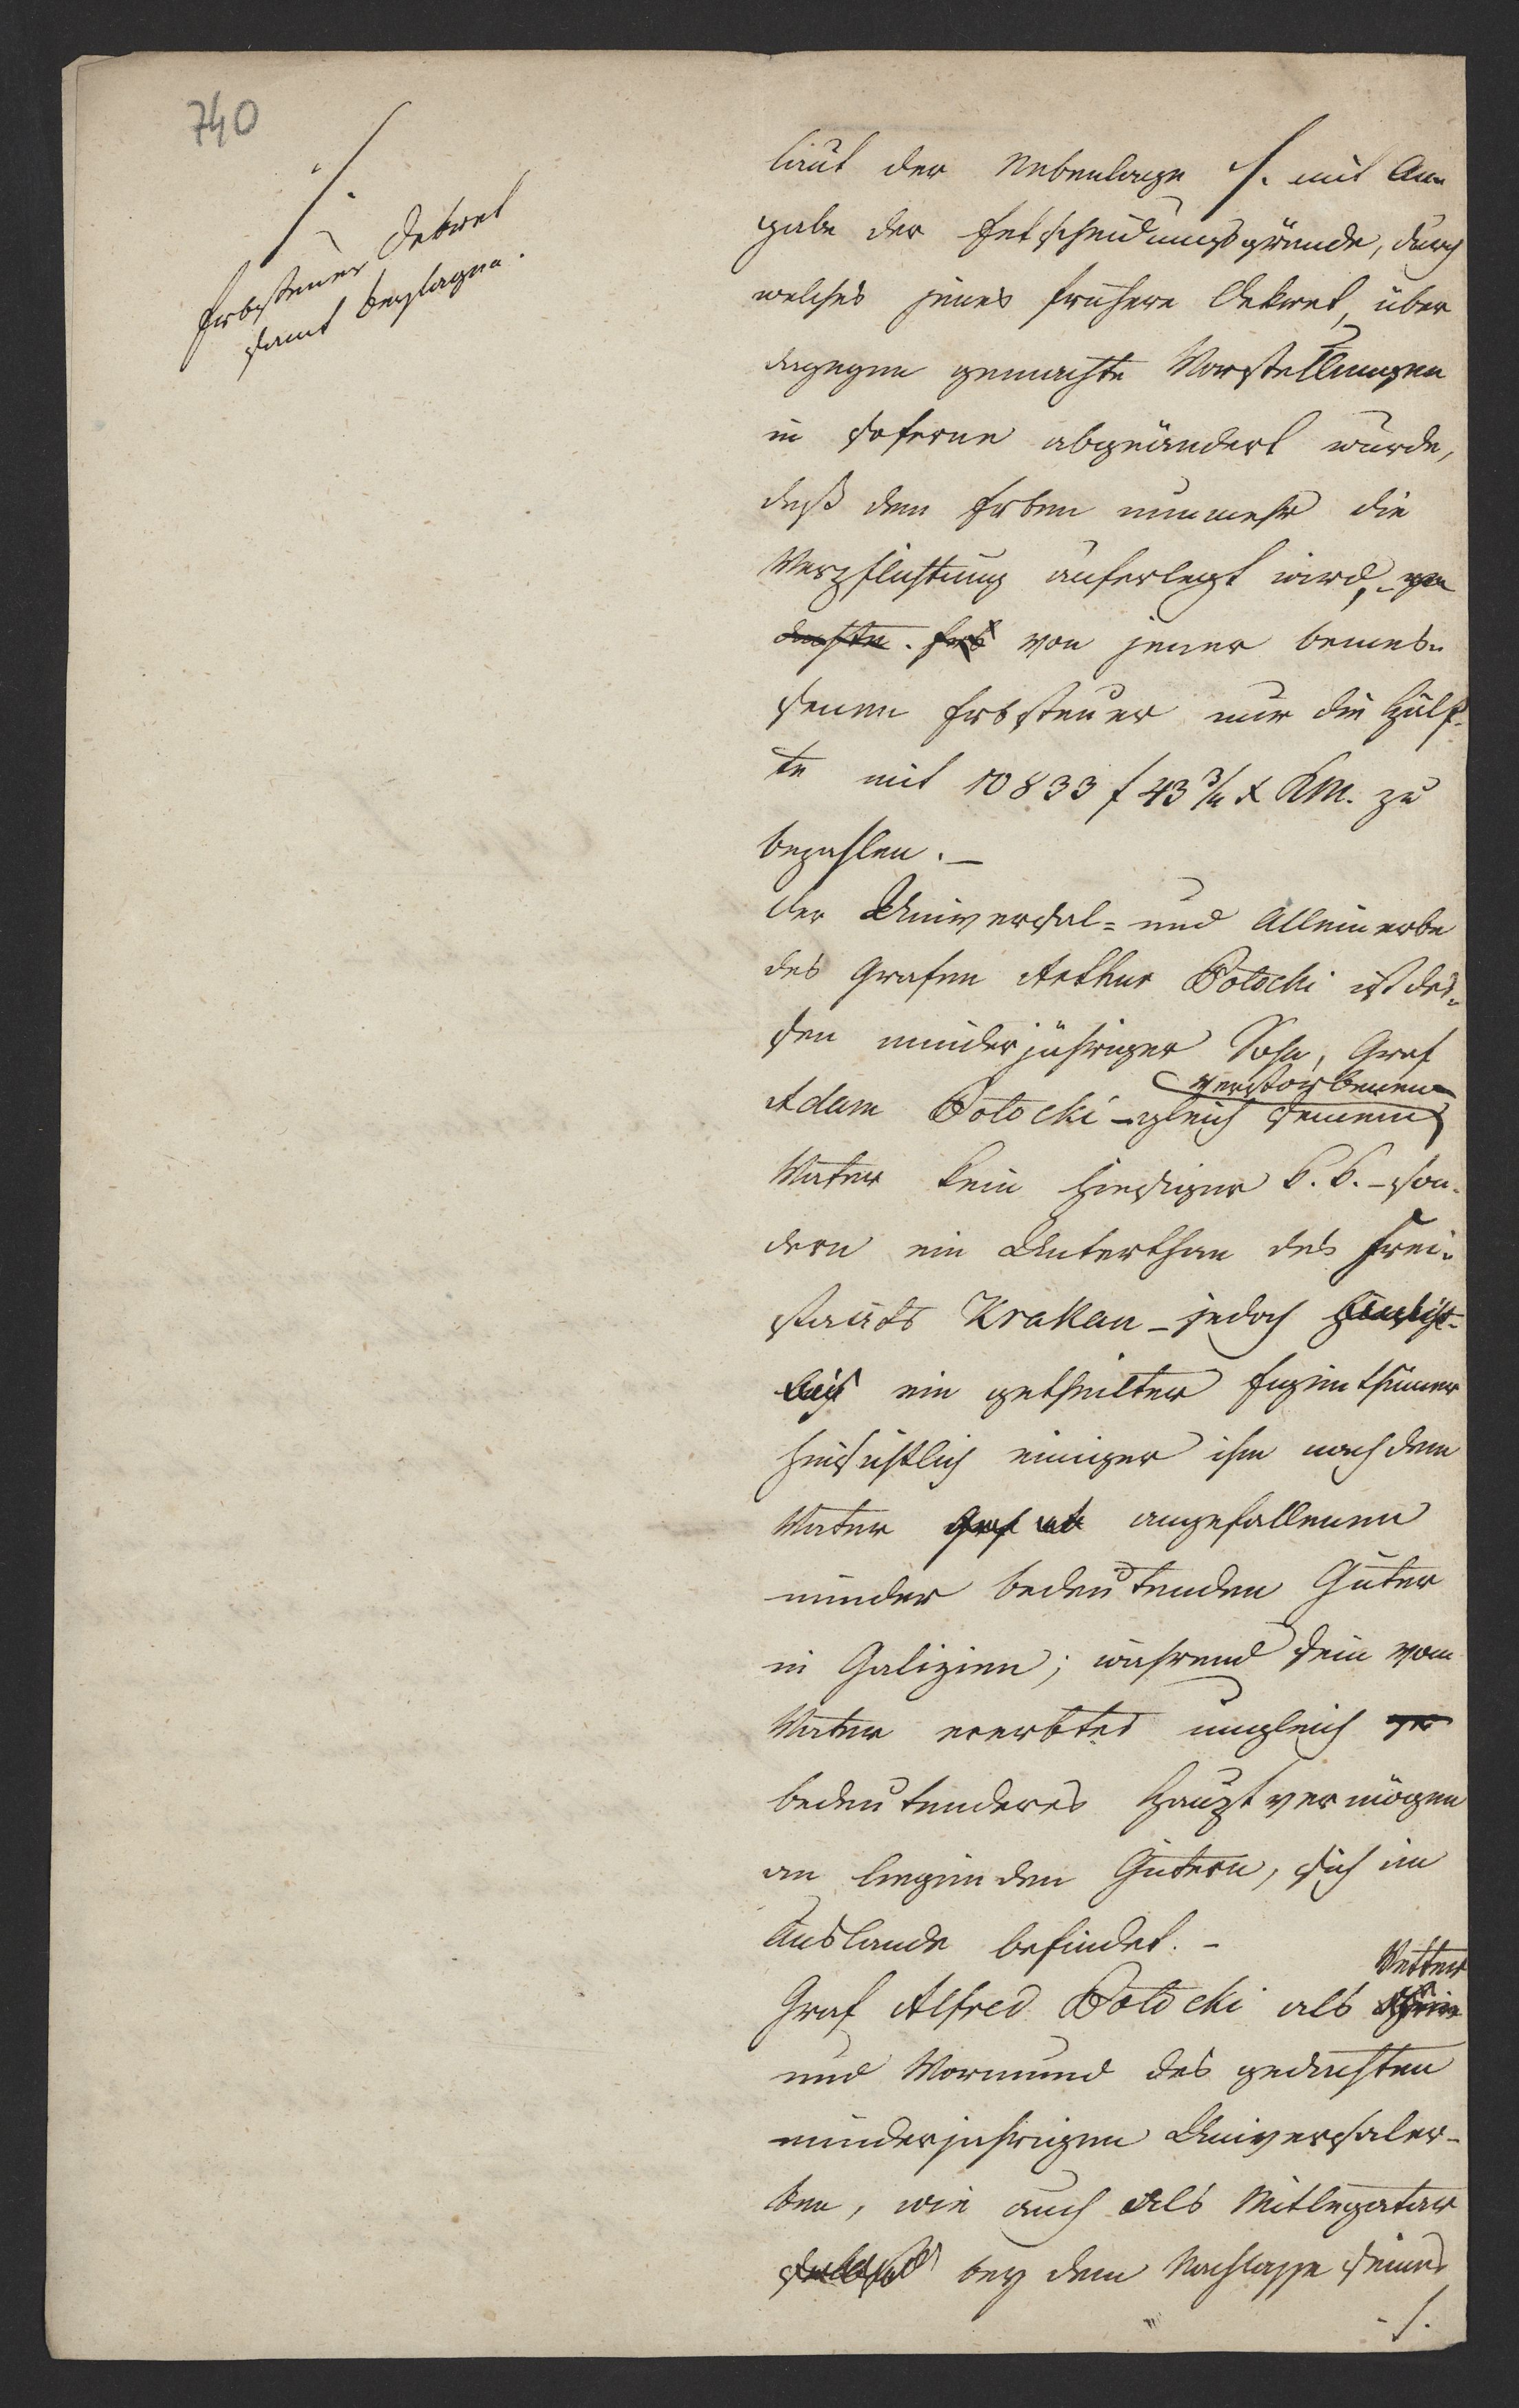 740
./.
Erbsteuer Dekret
samt Beylagen.
laut der Nebenlage ./. mit An-
gabe der Entscheidungsgründe, durch
welches jenes frühere Dekret, über
dagegen gemachte Vorstellungen
in soferne abgeändert wurde,
daß dem Erben nunmehr die
Verpflichtung auferlegt wird,
von jener bemes-
senen Erbsteuer nur die Hälf-
te mit 10833 f 43 3/4 x KM. zu
bezahlen. –
Der Universal- und Alleinerbe
des Grafen Arthur Potocki ist des-
sen minderjähriger Sohn, Graf
verstorbenen
Adam Potocki – gleich seinem
Vater kein hiesiger k. k. – son-
dern ein Unterthan des Frei-
staats Krakau – jedoch
ein getheilter Eigenthümer
hinsichtlich einiger ihm nach dem
Vater angefallenen
minder bedeutenden Güter
in Galizien; während sein vom
Vater ererbtes ungleich
bedeutenderes Hauptvermögen
an liegenden Gütern, sich im
Auslande befindet. –
Vetter
Graf Alfred Potocki als
und Vormund des gedachten
minderjährigen Universaler-
ben, wie auch als Mitlegatar
bey dem Nachlasse seines
./.